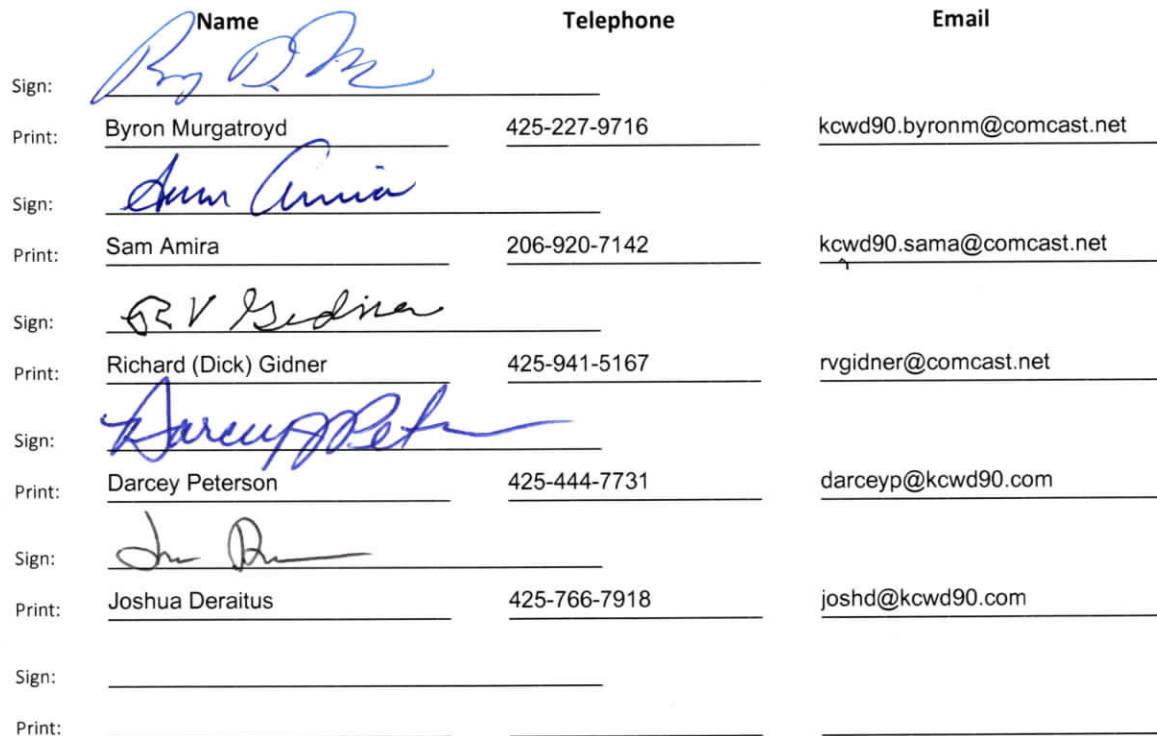 Name Telephone Email
Sign:
Print: Byron Murgatroyd 425-227-9716 kcwd90.byronm@comcast.net
Sign:
Print: Sam Amira 206-920-7142 kcwd90.sama@comcast.net
Sign: RV Gidner
Print: Richard (Dick) Gidner 425-941-5167 rvgidner@comcast.net
Sign: Darcey Peterson
Print: Darcey Peterson 425-444-7731 darceyp@kcwd90.com
Sign:
Print: Joshua Deraitus 425-766-7918 joshd@kcwd90.com
Sign:
Print: